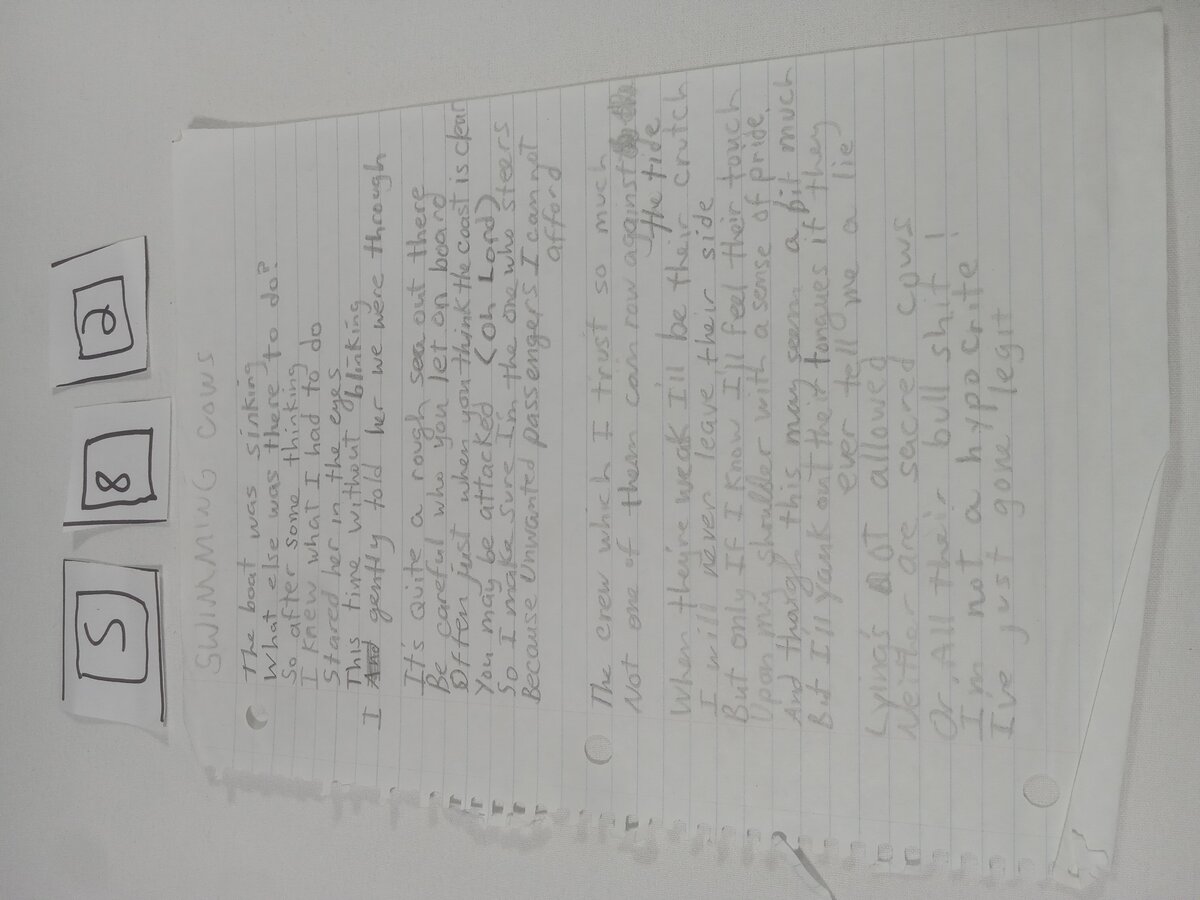 5 8 2
SWIMMING COWS
The boat was sinking
What else was there to do?
So after some thinking
I knew what I had to do
Stared her in the eyes
This time without blinking
I gently told her we were through
It's quite a rough sea out there
Be careful who you let on board
Often just when you think the coast is clear
You may be attacked (OH LORD)
So I make sure I'm the one who steers
Because Unwanted passengers I cannot
afford
The crew which I trust so much
Not one of them can row against
the tide
When theyre weak I'll be their crutch
I will never leave their side
But only If I know I'll feel their touch
Upon my shoulder with a sense of pride
And though this may seem a bit much
But I'll yank out their tongues if they
ever tell me a lie
Lying's NOT allowed
Neither are sacred cows
Or All their bull shit!
I'm not a hypocrite
I've just gone legit